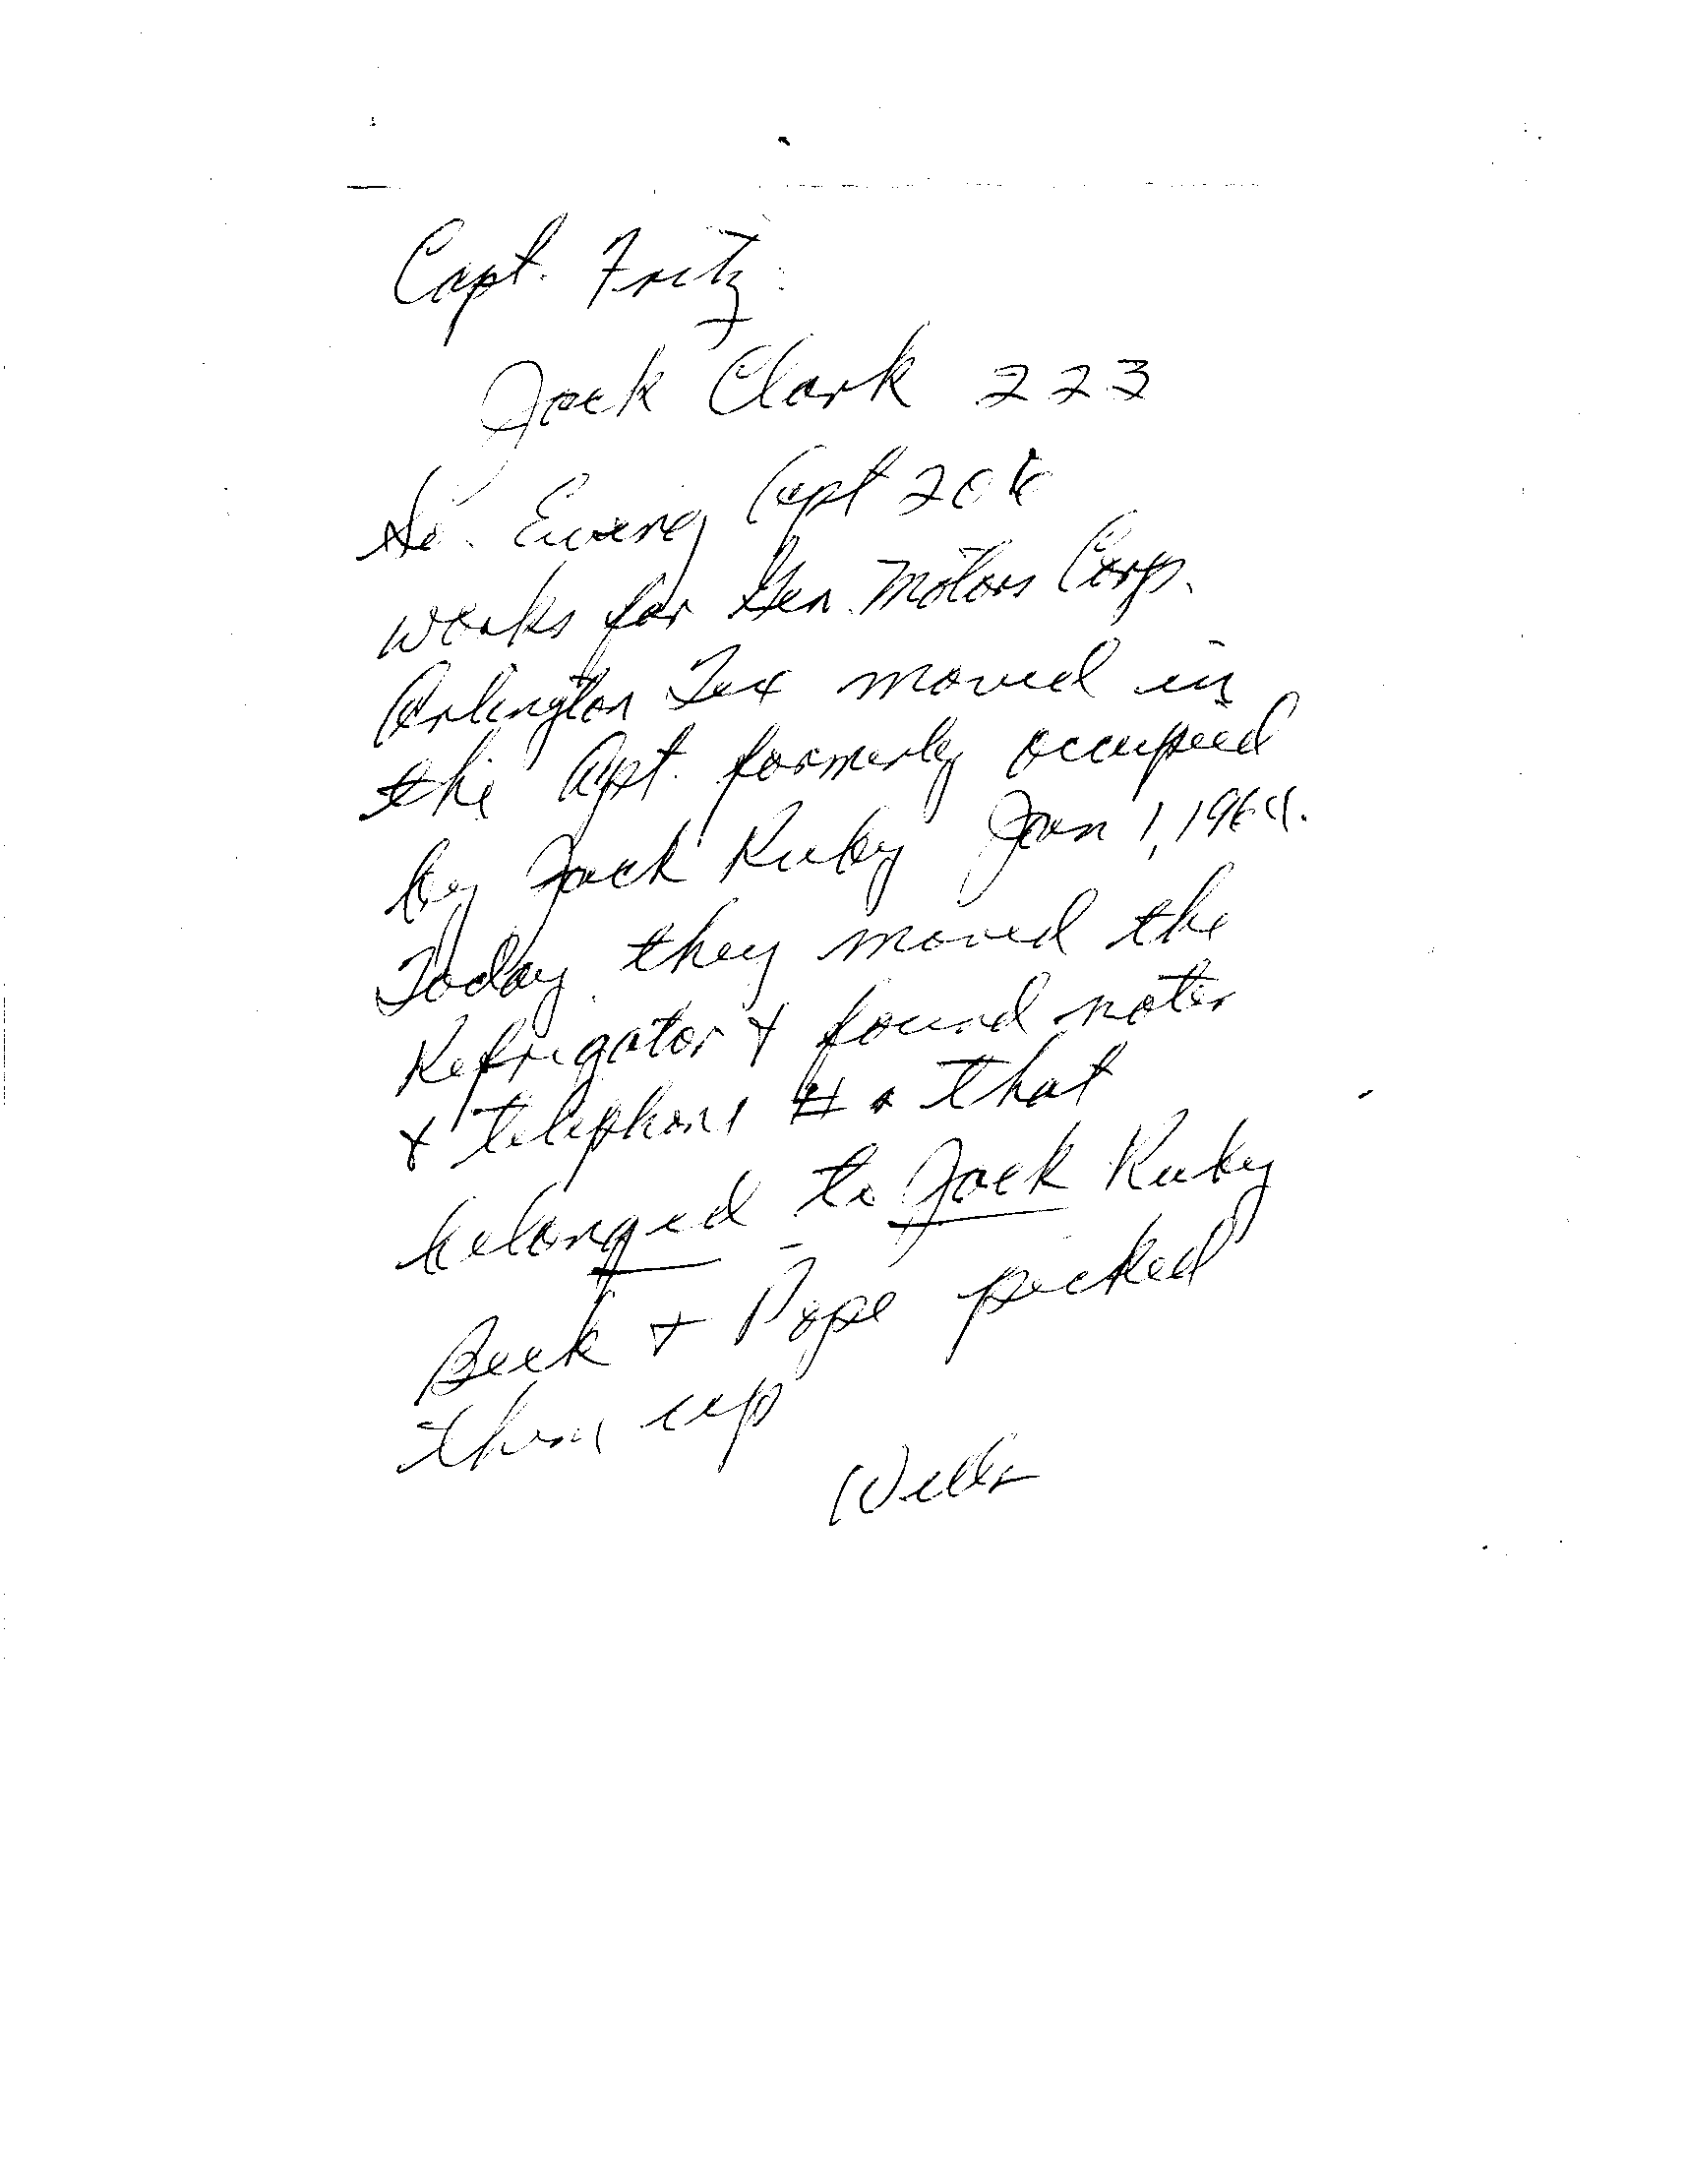 Capt. Fritz:
Jack Clark 223
So. Ewing Apt 206
works for Gen. Motors Corp.
Arlington Tex moved in
the Apt. formerly occupied
by Jack Ruby Jan 1, 1964.
Today they moved the
Refrigator & found notes
& telephone #s that
belonged to Jack Ruby
Beck & Pope picked
them up
Wells